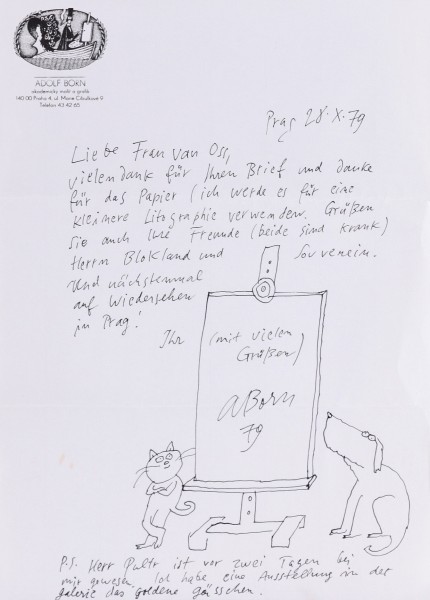 ADOLF BORN
akademický malíř a grafik
140 00 Praha 4, ul. Marie Cibulkové 9
Telefon 43 42 65
Prag 28.X.79
Liebe Frau van Oss,
vielen dank für Ihren Brief und danke
für das Papier (ich werde es für eine
kleinere Litographie verwenden. Grüßen
Sie auch Ihre Freunde (beide sind krank)
Herrn Blokland und Souverein.
Und nächstesmal
auf Wiedersehen
in Prag!
Ihr (mit vielen
Grüßen)
ABorn
79
P.S. Herr Pultr ist vor zwei Tagen bei
mir gewesen. Ich habe eine Ausstellung in der
galerie das goldene gässchen.